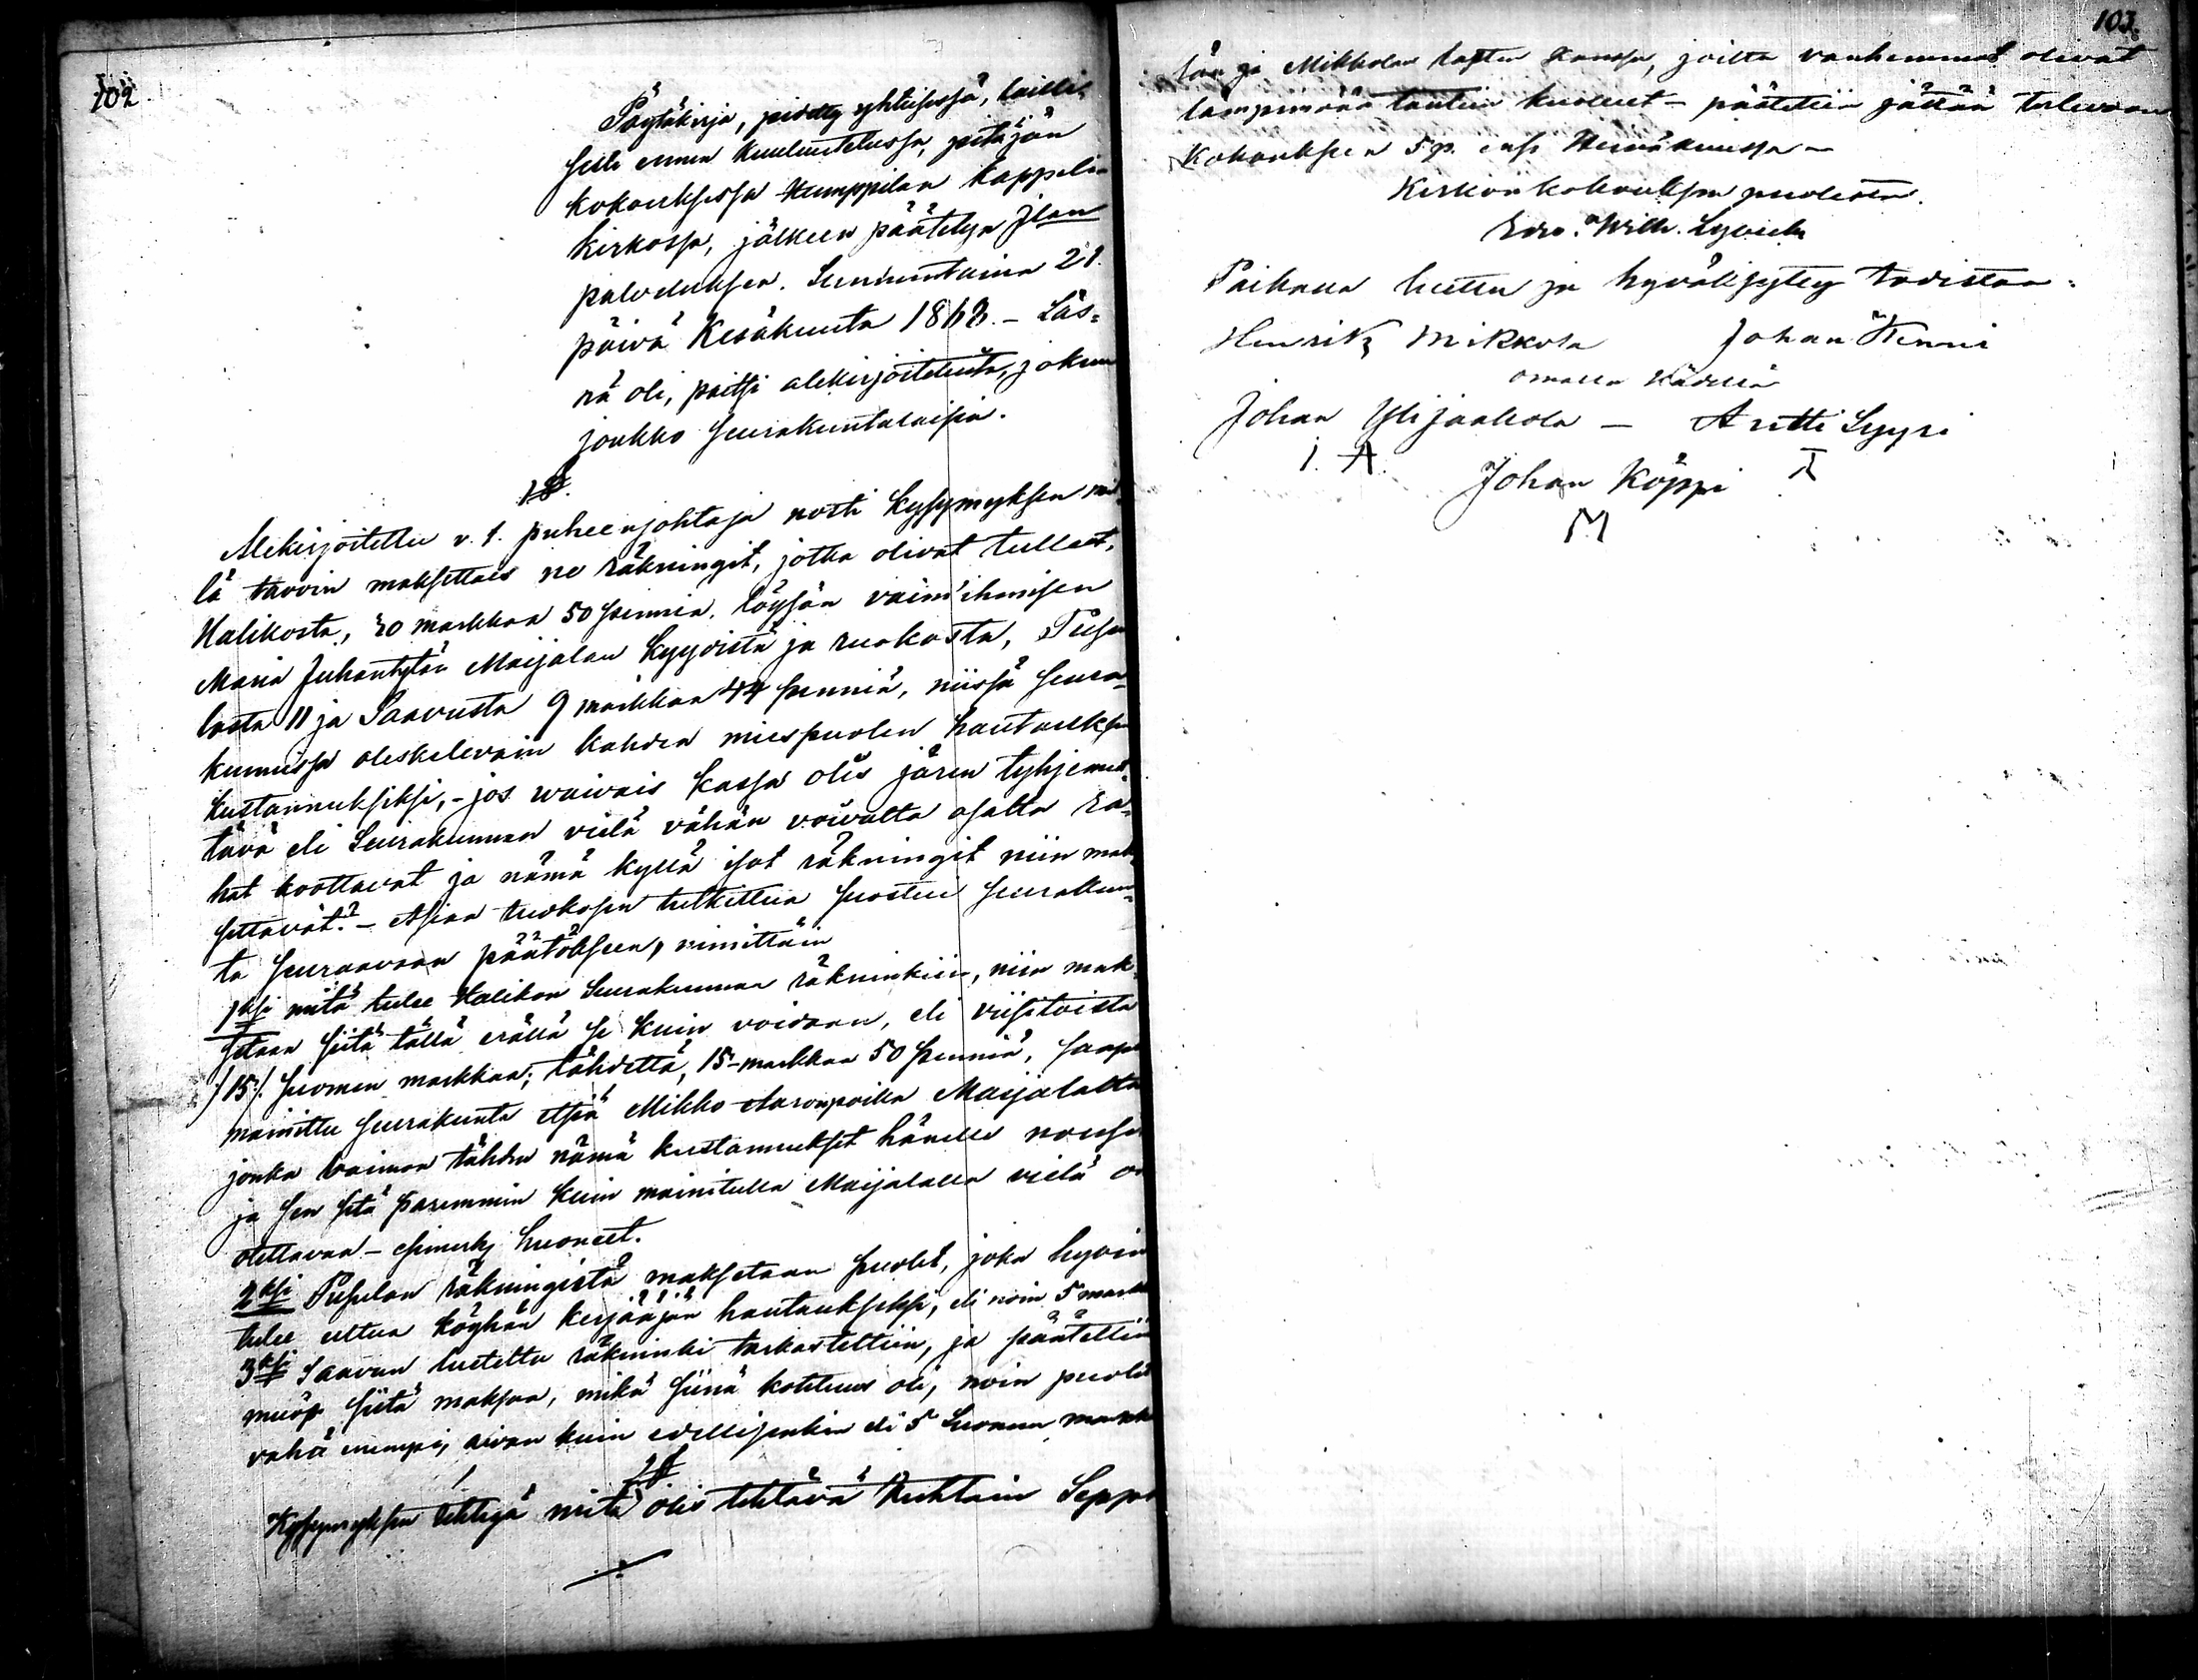 102
Pöytäkirja, pidetty yhteisessä, lailli-
sesti ennen kuulutetussa, pitäjän
kokouksessa Humppilan kappelin
kirkossa, jälkeen päätetyn Jlan
palveluksen. Sunnuntaina 21.
päivä Kesäkuuta 1868. - Läs-
nä oli, paitsi alekirjoitetuita, jokuu
joukko seurakuntalaisia.
1§.
Alekirjoitettu v. t. puheenjohtaja nosti kysymyksen mil
lä tavoin maksettais ne räkningit, jotka olivat tulleet,
Halikosta, 30 markkaa 50 penniä, löysän vaim'ihmisen
Maria Juhantytön Maijalan kyydistä ja ruokosta, Pusu
lasta 11 ja Saavusta 9 markkaa 44 penniä, niissä seura-
kunnissa oleskelevain kahden miespuolen hautauksen
kustannuksiksi, - jos waivais kassa olis järin tyhjennet-
tävä eli Seurakunnan vielä vähän voivalta osalta ra-
hat koottavat ja nämä kyllä isot räkningit niin mak
settavat? - Asian tarkosen tutkittua suostui seurakun-
ta seuraavaan päätökseen, nimittäin
1ksi mitä tulee Halikon Seurakunnan räkninkiin, niin mak-
setaan siitä tällä erällä se kuin voidaan, eli viisitoista
/:15:/ Suomen markkaa; tähdettä, 15-markkaa 50 penniä, saapi
mainittu seurakunta etsiä Mikko Aaronpoika Maijalalta
jonka vaimon tähden nämä kustannukset hänelle nousi
ja sen sitä paremmin kuin mainitulla Maijalalla vielä on
otettavaa - esimerk, huoneet.
2ksi Pusulan räkningistä maksetaan puolet, joka hyvin
tulee eteen köyhän kerjääjän hautaukseksi, eli noin 5 mark
3ksi Saavun luetettu räkninki tarkasteltiin, ja päätettiin
myös siitä maksaa, mikä siinä kohtuus oli, noin puolet
vähä enempi, aivan kuin edellisenkin eli 5 Suomen markk
2§
Kysymyksen tehtyä mitä olis tehtävä Huhtain Seppä
103.
län ja Mikkolan lasten kanssa, joilta vanhemmat olivat
lämpimään tautiin kuolleet - päätettiin jättää tulevaan
Kokoukseen 5 p. ens Heinäkuussa -
Kirkon kokouksen puolesta.
Edv. Wilh. Lyvich
Paikalla luettu ja hyväksytty todistaa:
Henrik Mikkola Johan Henni
omalla kädellä
Johan Ylijaakola - Antti Lyyri
Johan Köppi
M